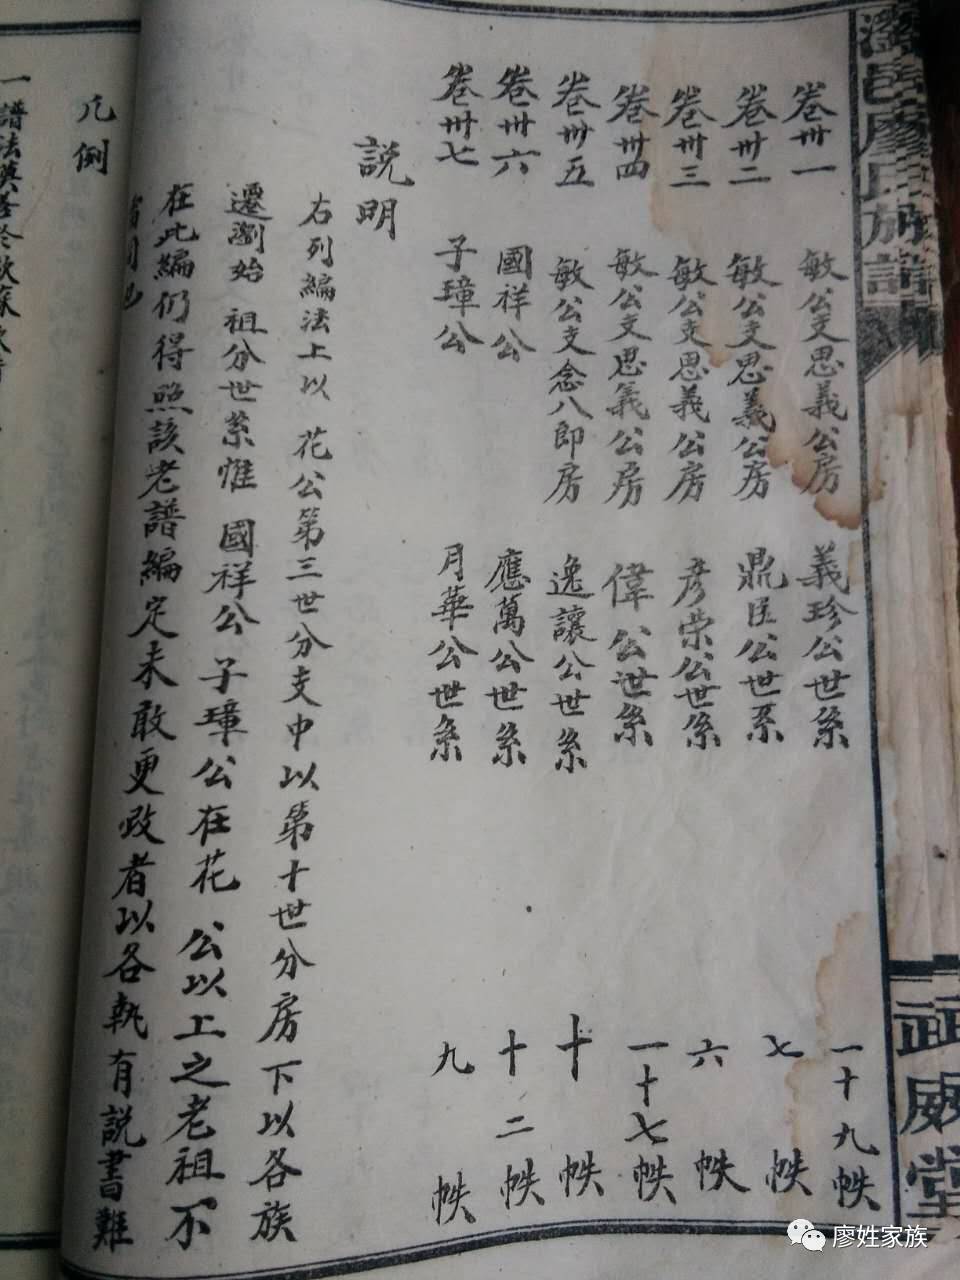 瀏邑廖氏族譜
武威堂
卷卅一 敏公支思義公房 義珍公世系 一十九帙
卷卅二 敏公支思義公房 鼎臣公世系 七帙
卷卅三 敏公支思義公房 彥榮公世系 六帙
卷卅四 敏公支思義公房 偉公世系 一十七帙
卷卅五 敏公支念八郎房 逸讓公世系 十帙
卷卅六 國祥公 應萬公世系 十二帙
卷卅七 子璋公 月華公世系 九帙
說明
右列編法上以 花公第三世分支中以第十世分房下以各族
遷瀏始 祖分世系惟 國祥公 子璋公在花 公以上之老祖不
在此編仍得照該老譜編定未敢更改者以各執有說書難
凡例
一譜法莫善於歐蘇
廖姓家族